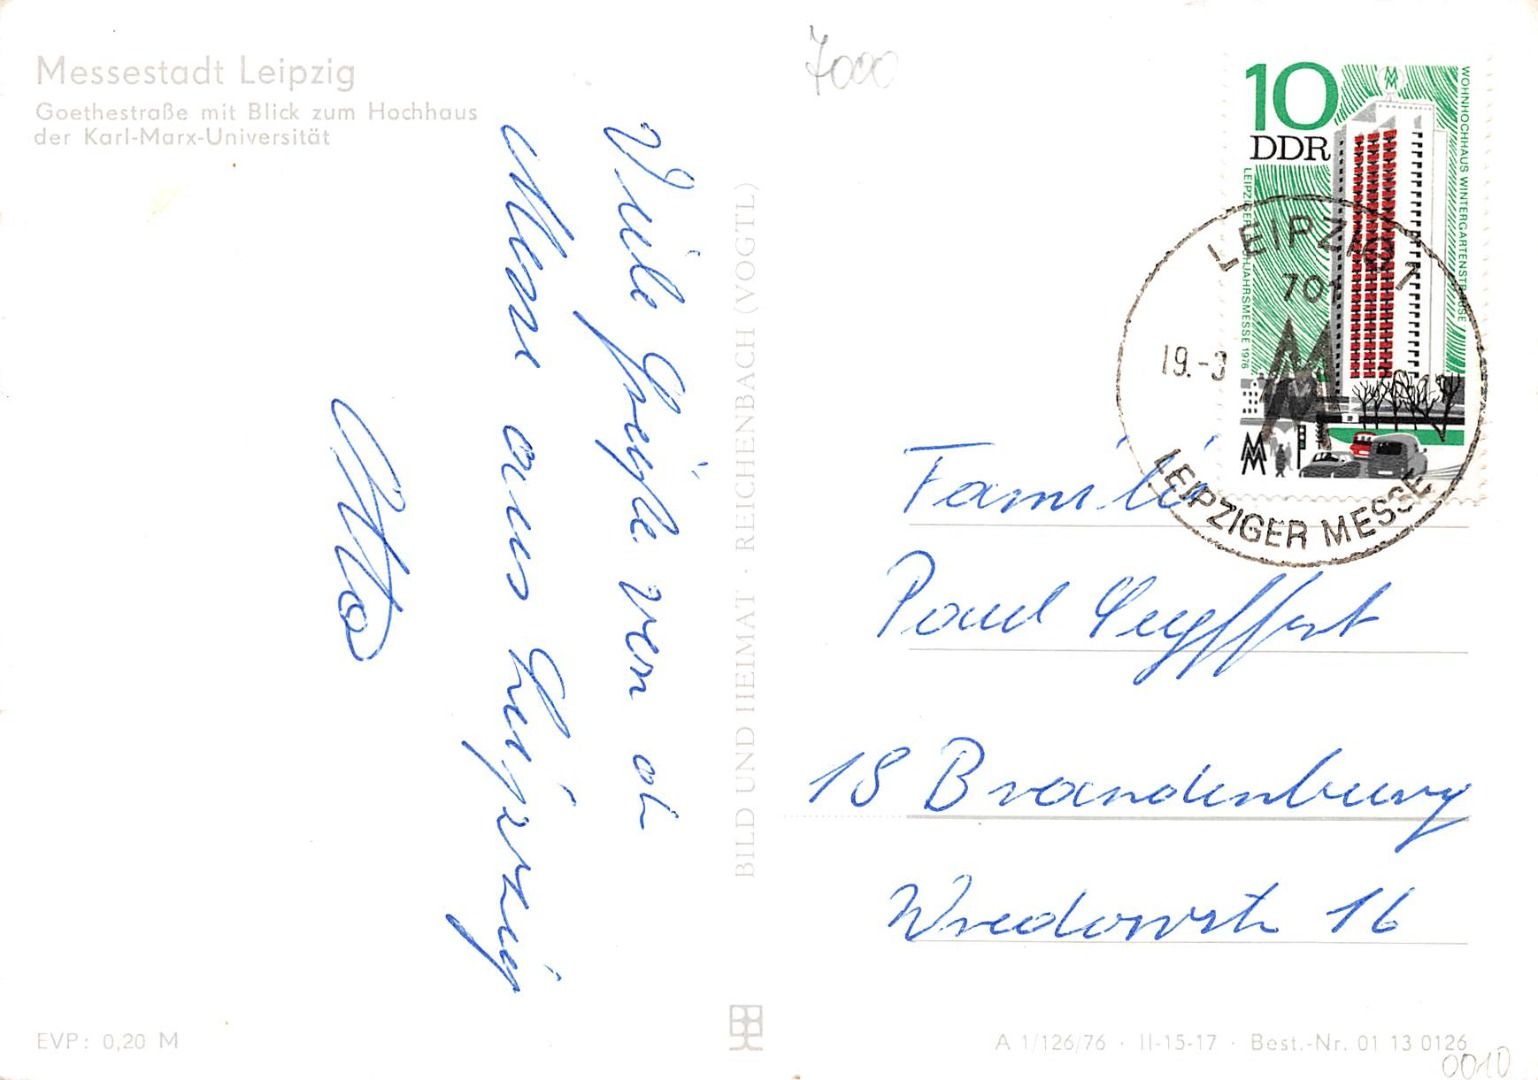 Messestadt Leipzig
Goethestraße mit Blick zum Hochhaus
der Karl-Marx-Universität
Viele Grüße von der
Messe aus Leipzig
Otto
BILD UND HEIMAT · REICHENBACH (VOGTL)
7000
10
DDR
WOHNHOCHHAUS WINTERGARTENSTRASSE
LEIPZIGER FRÜHJAHRSMESSE 1976
LEIPZIG 1
701
19.-3
MM
LEIPZIGER MESSE
MM
Familie
Paul Seyffert
18 Brandenburg
Wredowstr 16
EVP: 0,20 M
A 1/126/76 · II-15-17 · Best.-Nr. 01 13 0126
0010